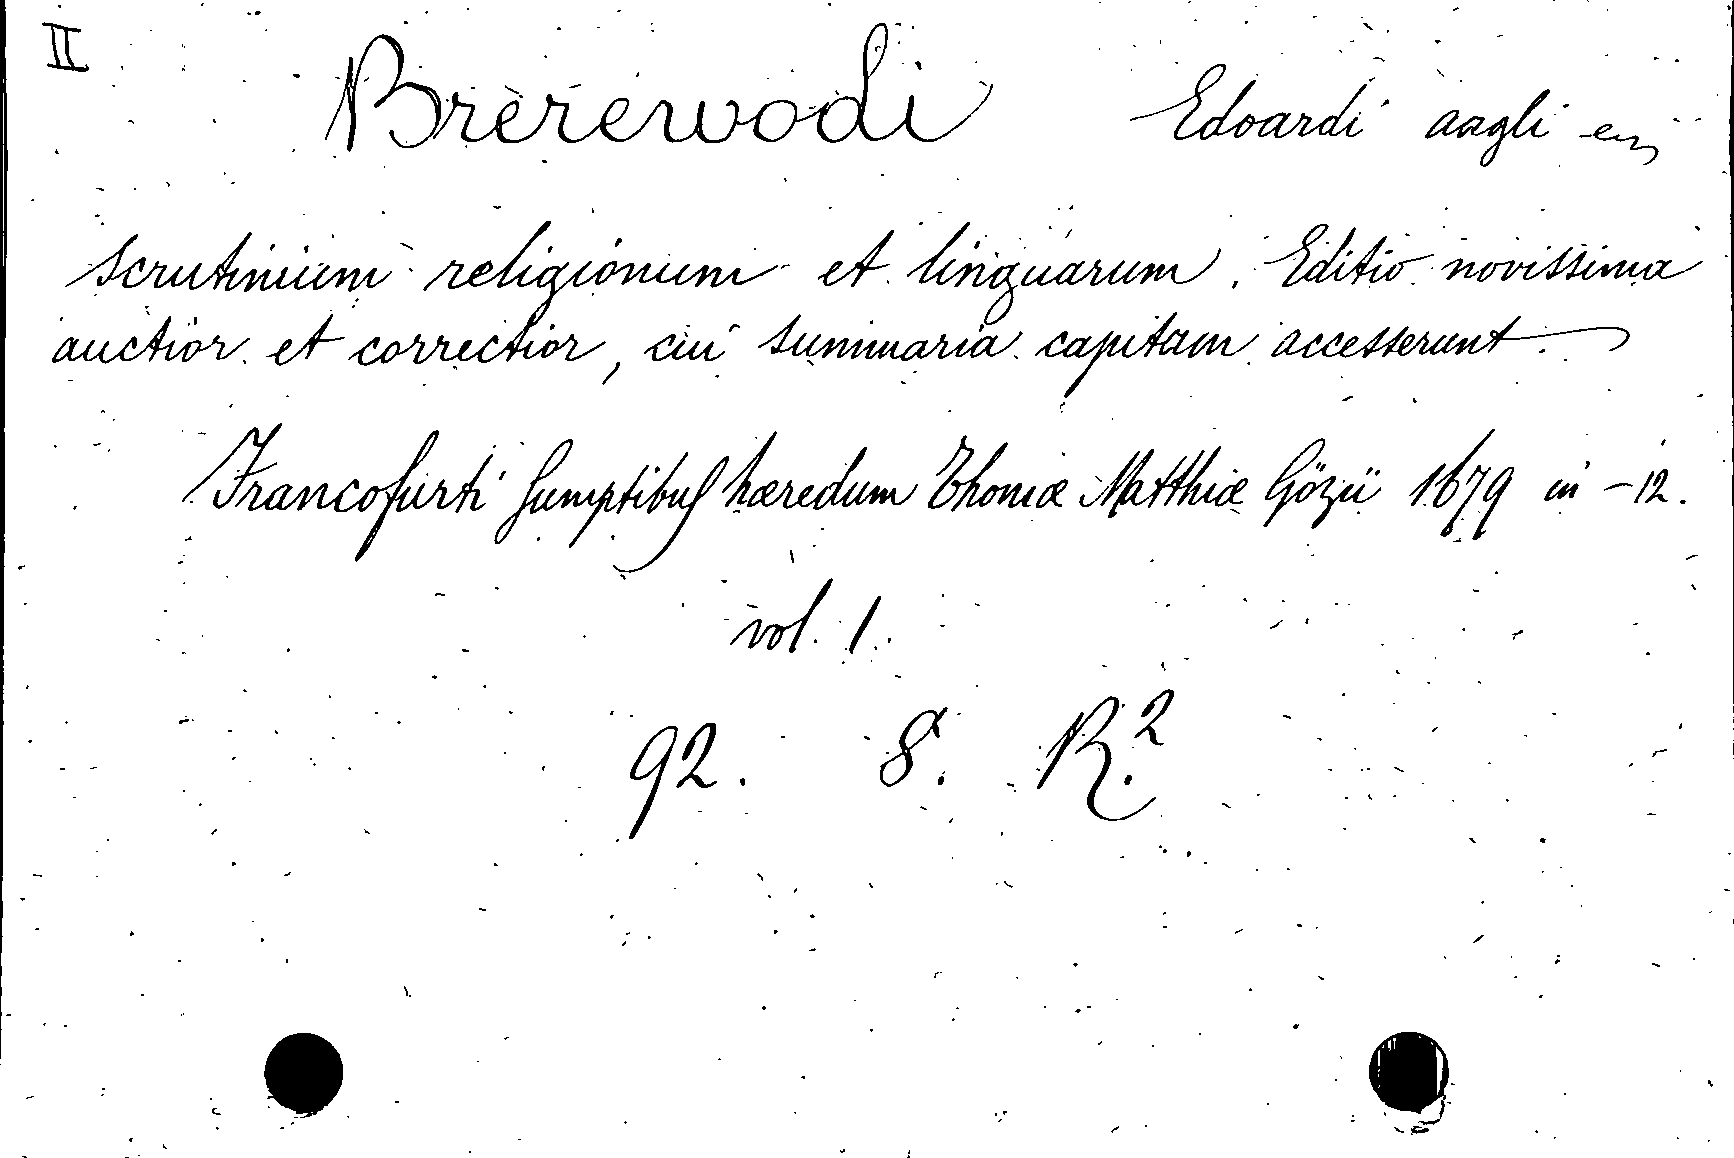 II
Brerewodi Edoardi aagli en
scrutinium religionum et linguarum. Editio novissima
auctior et correctior, cui summaria capitam accesserunt.
Francofurti sumptibus hæredum Thomæ Matthiæ Gözii 1679 in-12.
vol. 1.
92. 8. R.²